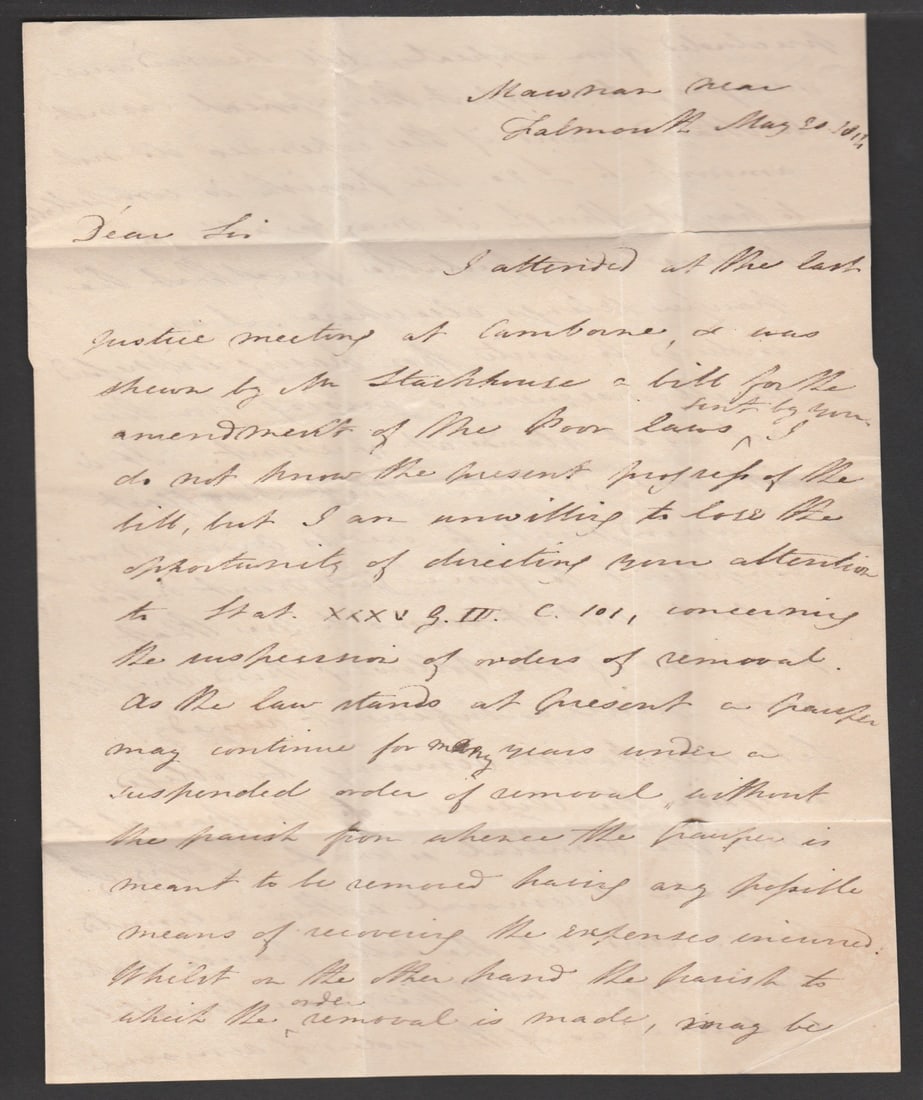 Mawnan near
Falmouth May 20
Dear Sir
I attended at the last
justice meeting at Camborne, & was
shewn by Mr Stackhouse a bill for the
sent by you
amendment of the Poor laws ^ I
do not know the present progress of the
bill, but I am unwilling to lose the
opportunity of directing your attention
to Stat. XXXV G. III. C. 101, concerning
the suspension of orders of removal.
As the law stands at present a pauper
may continue for many years under a
suspended order of removal, without
the parish from whence the pauper is
meant to be removed having any possible
means of recovering the expenses incurred.
Whilst on the other hand the parish to
order
which the ^ removal is made, may be